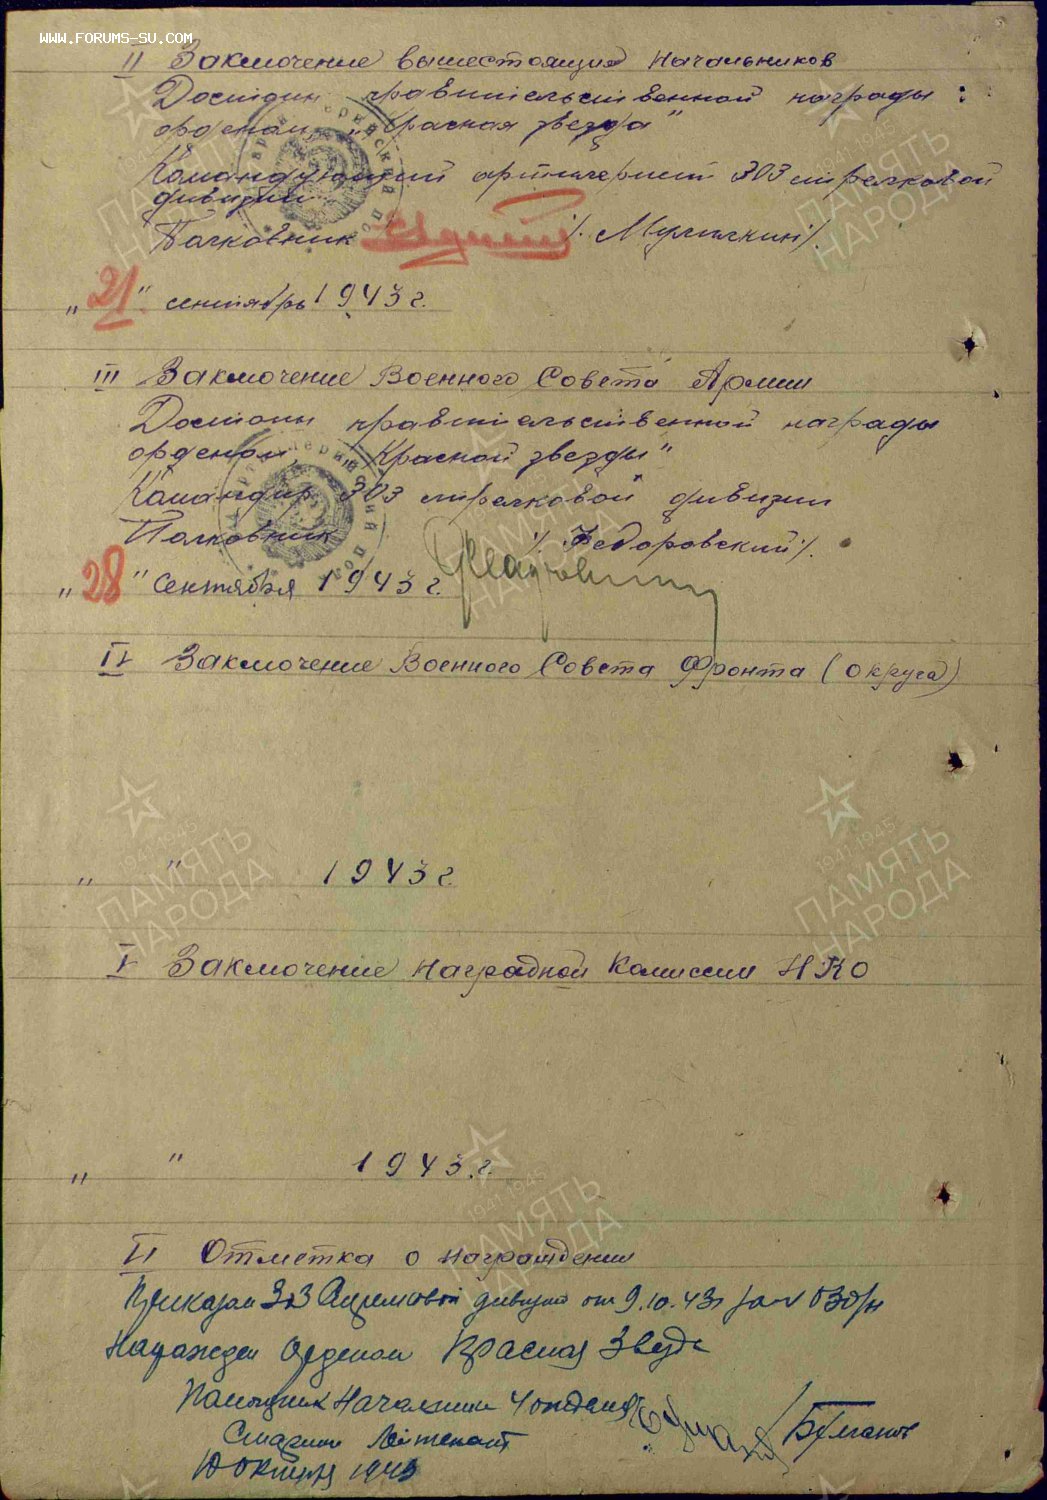 WWW.FORUMS-SU.COM
II Заключение вышестоящих Начальников
Достоин правительственной награды :
орденом „Красная звезда"
Командующий артиллерией 303 стрелковой
дивизии
Полковник /. /.
„21" сентябрь 1943 г.
III Заключение Военного Совета Армии
Достоин правительственной награды
орденом, Красной звезды"
Командир 303 стрелковой дивизии
Полковник /. Федоровский /.
„28" Сентября 1943 г.
IV Заключение Военного Совета Фронта (округа)
„ " 1943 г.
V Заключение Наградной Комиссии НКО
„ " 1943 г.
VI Отметка о награждении
Приказом 303 дивизии от 9.10.43г
Награжден Орденом Красная Звезда
Помощник Начальника 4 отделения
Старший Лейтенант Булганов
10 октября 1943
ПАМЯТЬ
НАРОДА
1941-1945